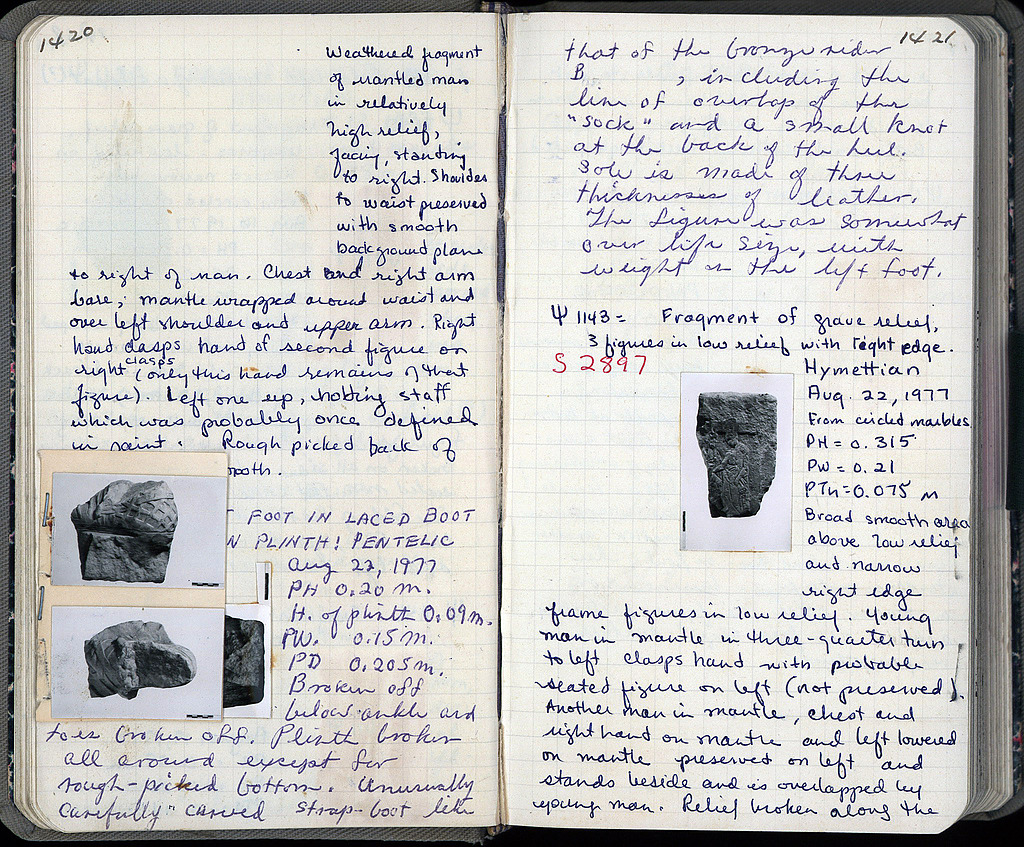 1420
Weathered fragment
of mantled man
in relatively
high relief,
facing, standing
to right. Shoulders
to waist preserved
with smooth
background plane
to right of man. Chest and right arm
bare; mantle wrapped around waist and
over left shoulder and upper arm. Right
hand clasps hand of second figure on
clasps
right (only this hand remains of that
figure). Left one up, holding staff
which was probably once defined
in paint. Rough picked back of
ooth.
T FOOT IN LACED BOOT
N PLINTH! PENTELIC
Aug 22, 1977
PH 0.20 m.
H. of plinth 0.09 m.
PW. 0.15 m.
PD 0.205 m.
Broken off
below ankle and
toes broken off. Plinth broken
all around except for
rough-picked bottom. Unusually
carefully carved strap-boot like
1421
that of the bronze rider
B , including the
line of overlap of the
"sock" and a small knot
at the back of the heel.
Sole is made of three
thicknesses of leather.
The figure was somewhat
over life size, with
weight on the left foot.
Ψ 1143 = Fragment of grave relief,
3 figures in low relief with right edge.
S 2897
Hymettian
Aug. 22, 1977
From circled marbles
PH = 0.315
PW = 0.21
PTh = 0.075 m
Broad smooth area
above low relief
and narrow
right edge
frame figures in low relief. Young
man in mantle in three-quarter turn
to left clasps hand with probable
seated figure on left (not preserved).
Another man in mantle, chest and
right hand on mantle and left lowered
on mantle preserved on left and
stands beside and is overlapped by
young man. Relief broken along the